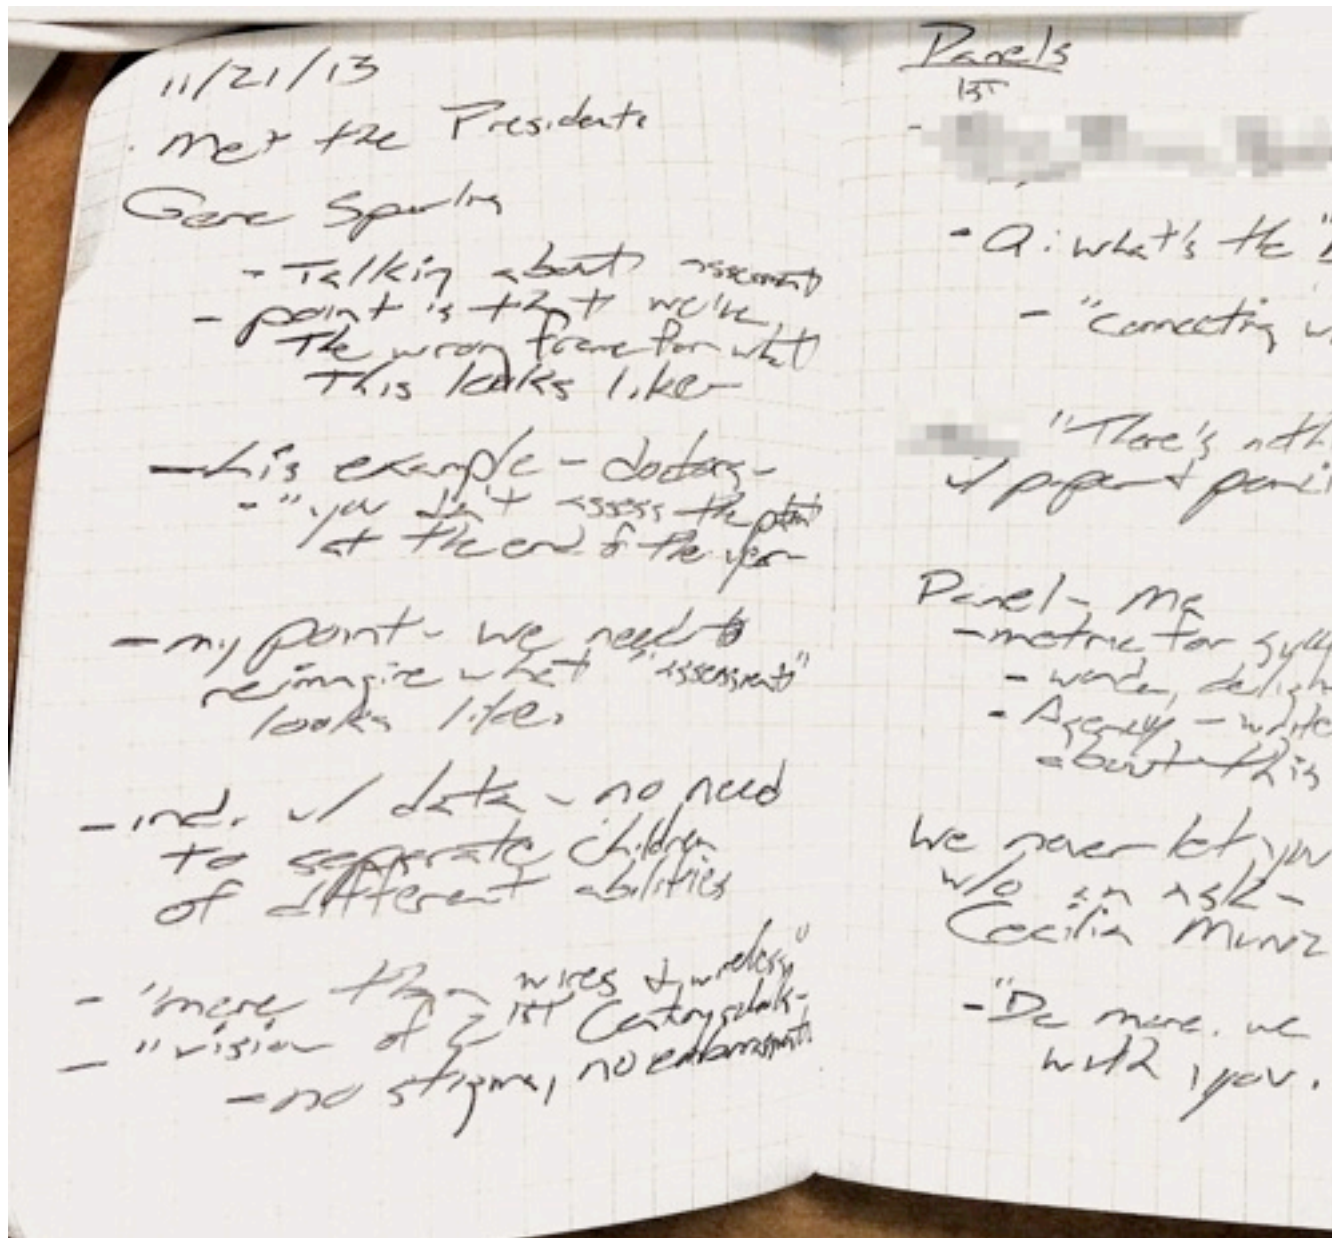 11/21/13
. Met the Presidents
Gene Sperling
- Talking about assessment
- point is that we're
the wrong frame for what
This looks like
- his example - doctors -
- "you don't assess the patient
at the end of the year
- my point - we need to
reimagine what "assessment"
looks like.
- ind. w/ data - no need
to seperate children
of different abilities
- "more than wires & wireless"
- "vision of 21st Century
- no stigma, no embarrassment
Panels
1st
-
- Q: what's the "
- "Connecting
"There's noth
w/ paper + penci
Panel - me
- metric for
- wonder, deligh
- Agency - write
about this
We never let you
w/o an ask -
Cecilia Muniz
- "Do more. we
with you.